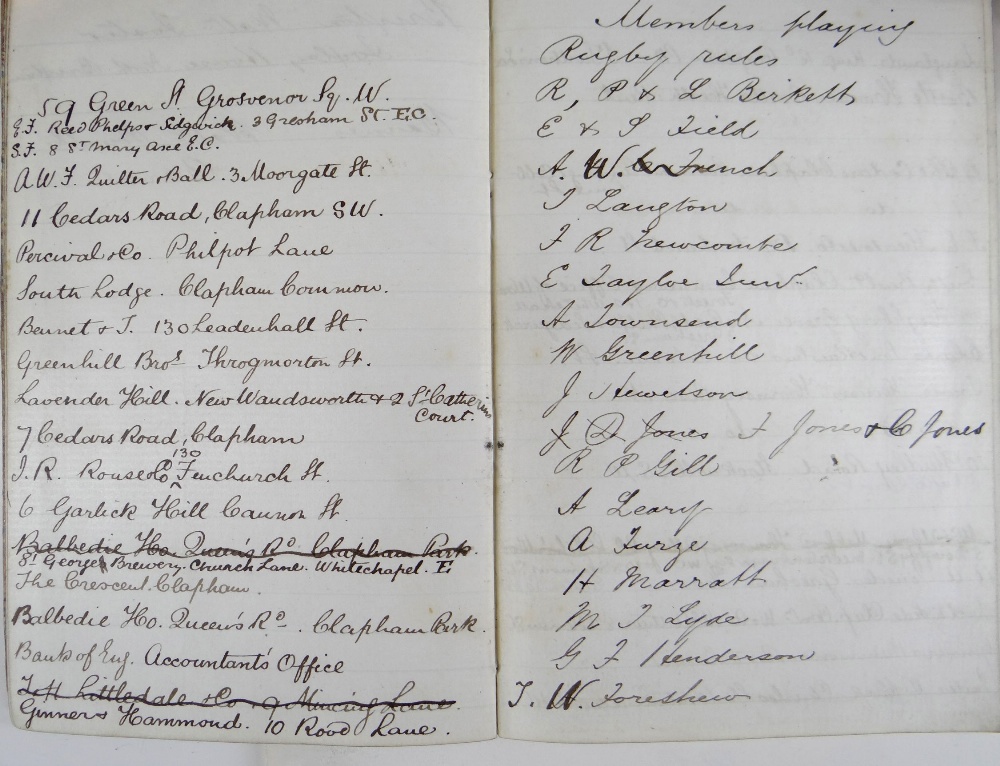 59 Green St. Grosvenor Sq. W.
E.F. Reed Phelps & Sidgwick. 3 Gresham St. E.C.
S.F. 8 St Mary Axe E.C.
A W. F. Quilter & Ball. 3 Moorgate St.
11 Cedars Road, Clapham SW.
Percival & Co. Philpot Lane
South Lodge. Clapham Common.
Bennet & T. 130 Leadenhall St.
Greenhill Bros Throgmorton St.
Lavender Hill. New Wandsworth & 2 St Catherine
Court.
7 Cedars Road, Clapham
J. R. Rouse & Co 130 Fenchurch St.
6 Garlick Hill Cannon St.
Balbedie Ho. Queen's Rd. Clapham Park
St George's Brewery. Church Lane. Whitechapel. E
The Crescent. Clapham.
Balbedie Ho. Queen's Rd. Clapham Park.
Bank of Eng. Accountants' Office
Littledale & Co 9 Mincing Lane.
Ginner & Hammond. 10 Rood Lane.
Members playing
Rugby rules
R, P & L Birkett
E & S Field
A. W. French
J Langton
F R Newcombe
E Tayloe
A Townsend
W Greenhill
J Hewetson
J D Jones F Jones & C Jones
R P Gill
A Leary
A Furze
H Marratt
M T Lyde
G F Henderson
T. W. Foreshew